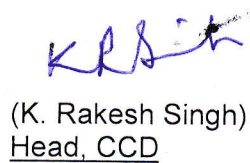 KRSingh
(K. Rakesh Singh)
Head, CCD